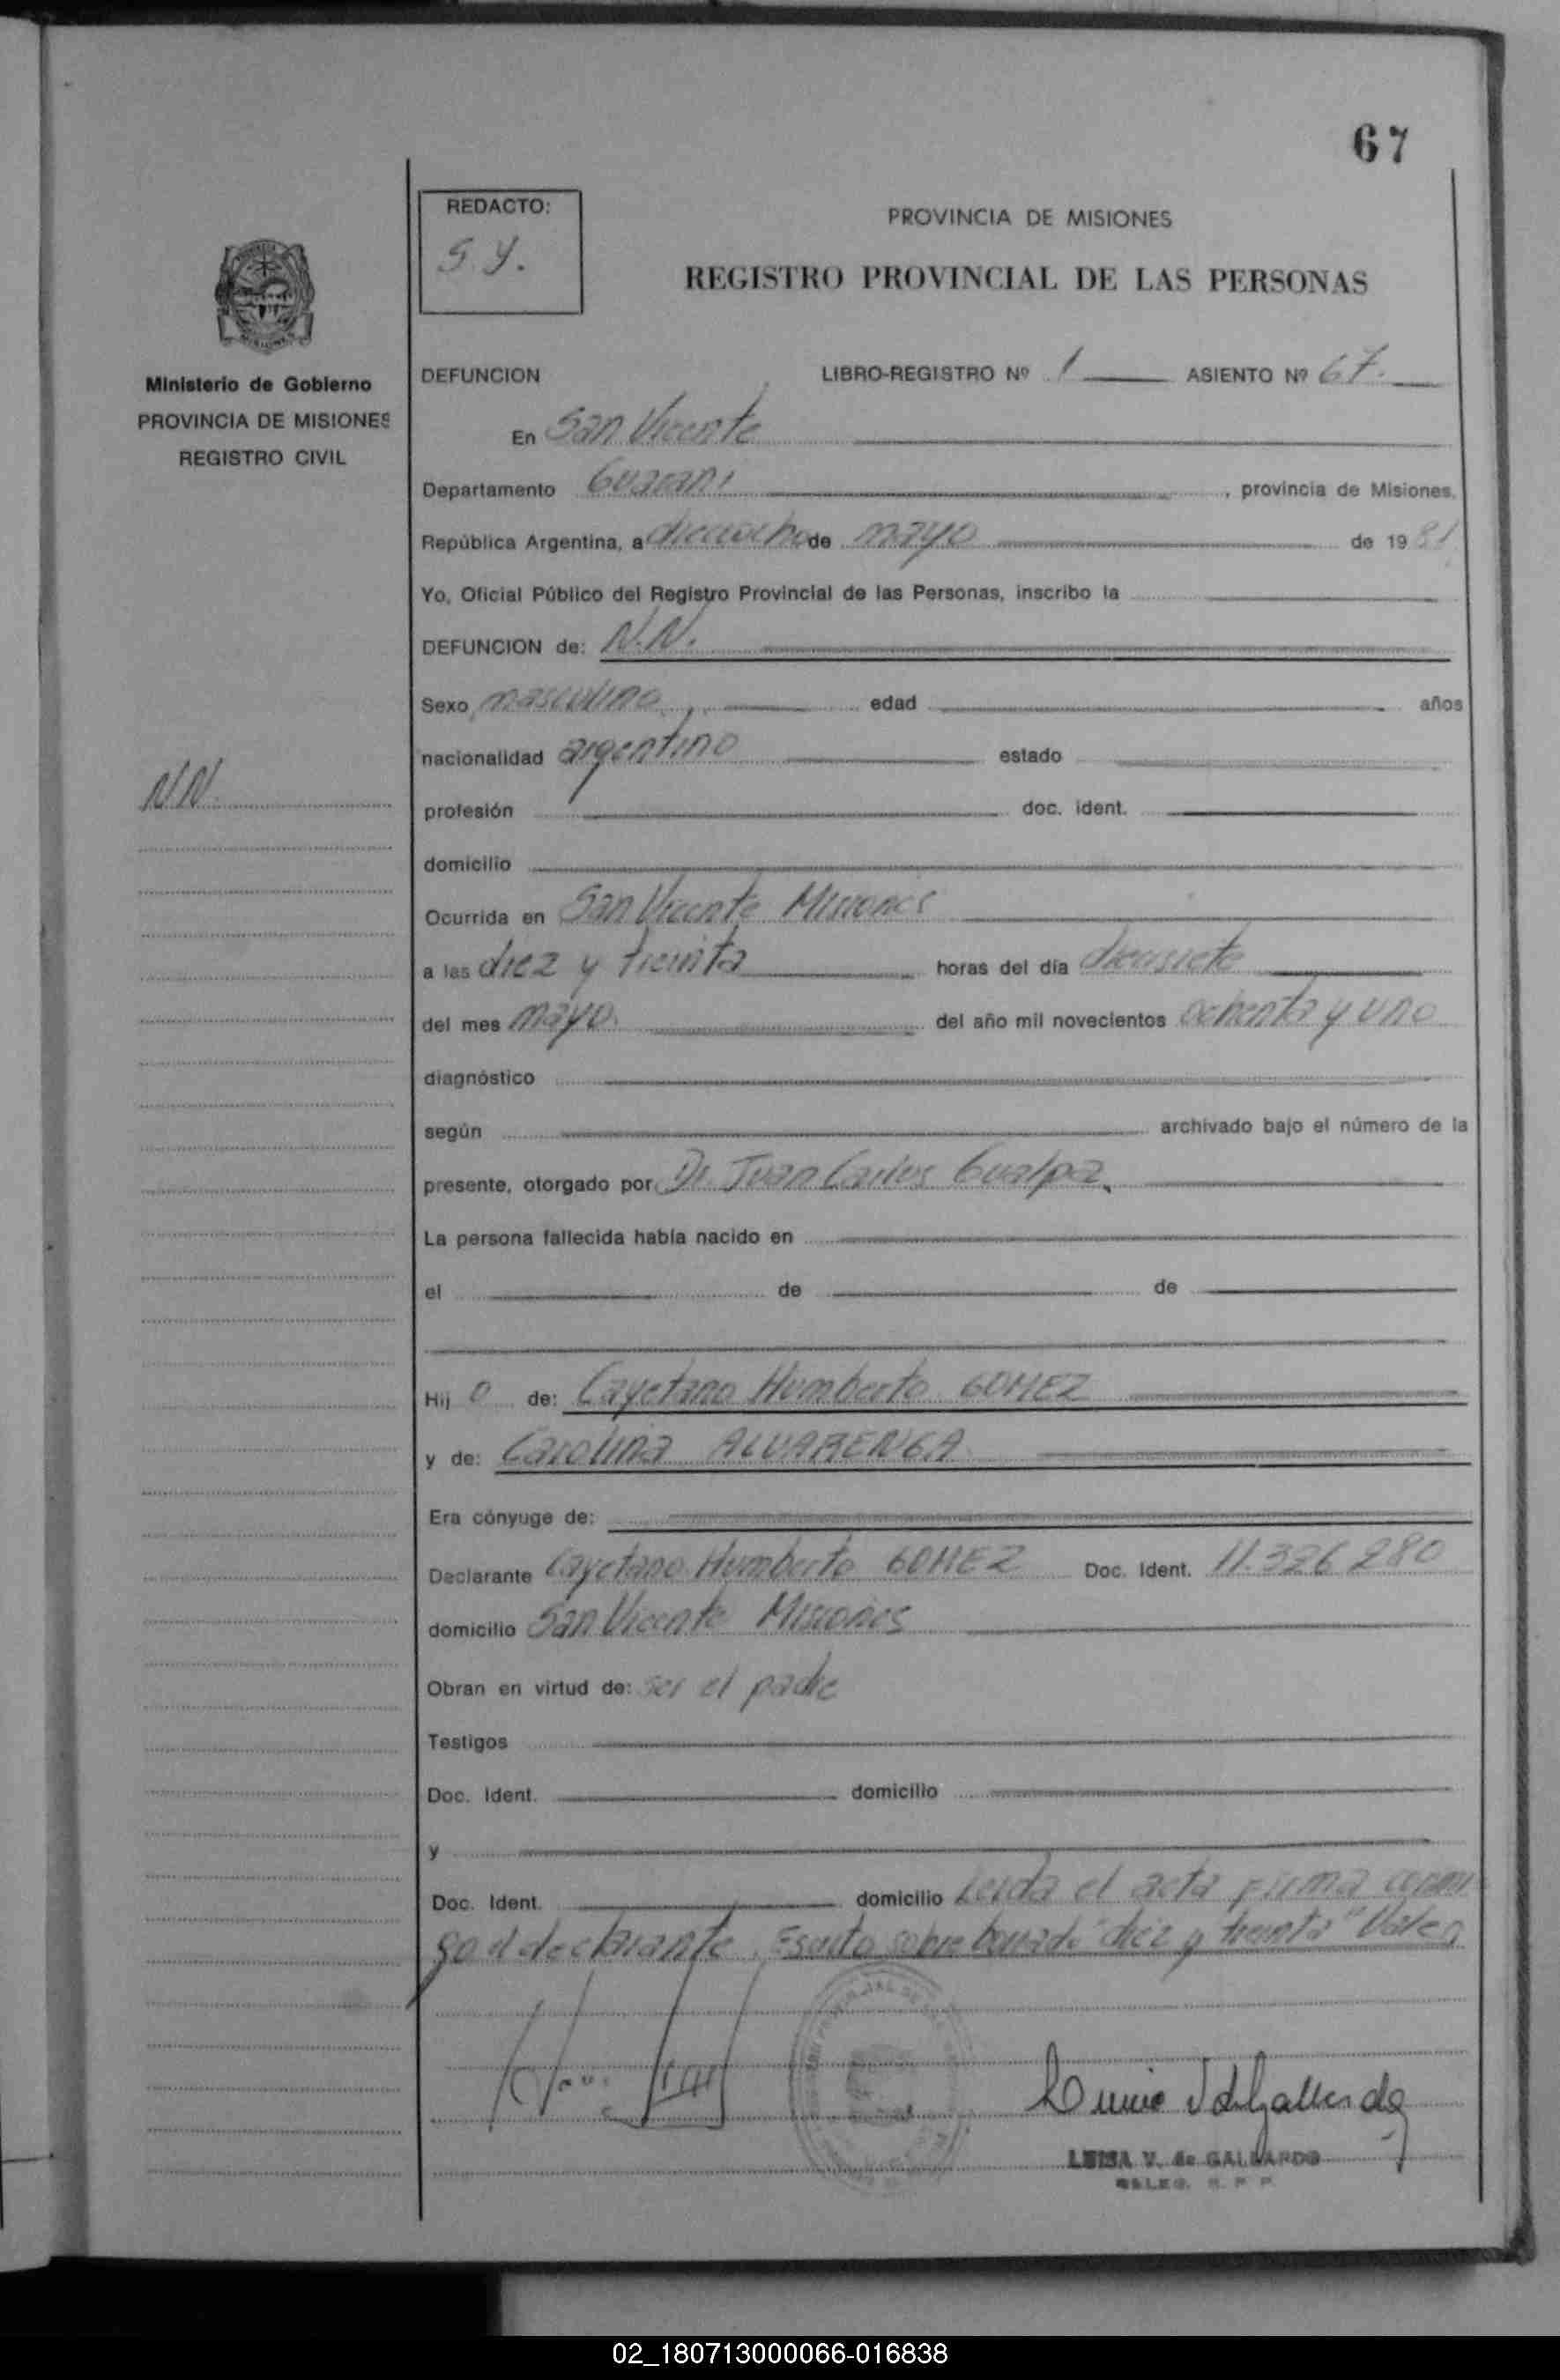 67
REDACTO:
S.Y.
PROVINCIA DE MISIONES
REGISTRO PROVINCIAL DE LAS PERSONAS
Ministerio de Gobierno
PROVINCIA DE MISIONES
REGISTRO CIVIL
DEFUNCION LIBRO-REGISTRO Nº 1 ASIENTO Nº 67.
En San Vicente
Departamento Guarani, provincia de Misiones,
República Argentina, a dieciocho de mayo de 1981
Yo, Oficial Público del Registro Provincial de las Personas, inscribo la
DEFUNCION de: N.N.
Sexo masculino edad años
nacionalidad argentino estado
N.N.
profesión doc. ident.
domicilio
Ocurrida en San Vicente Misiones
a las diez y treinta horas del día diecisiete
del mes mayo. del año mil novecientos ochenta y uno
diagnóstico
según archivado bajo el número de la
presente, otorgado por Dr. Juan Carlos Gualpa.
La persona fallecida había nacido en
el de de
Hij o de: Cayetano Humberto GOMEZ
y de: Carolina ALVARENGA
Era cónyuge de:
Declarante Cayetano Humberto GOMEZ Doc. Ident. 11.326.280
domicilio San Vicente Misiones
Obran en virtud de: ser el padre
Testigos
Doc. Ident. domicilio
y
Doc. Ident. domicilio Leida el acta firma conmi
go el declarante. Escrito sobre borrado "diez y treinta" Vale
LUISA V. de GALLARDO
DELEG. R. P. P.
02_180713000066-016838